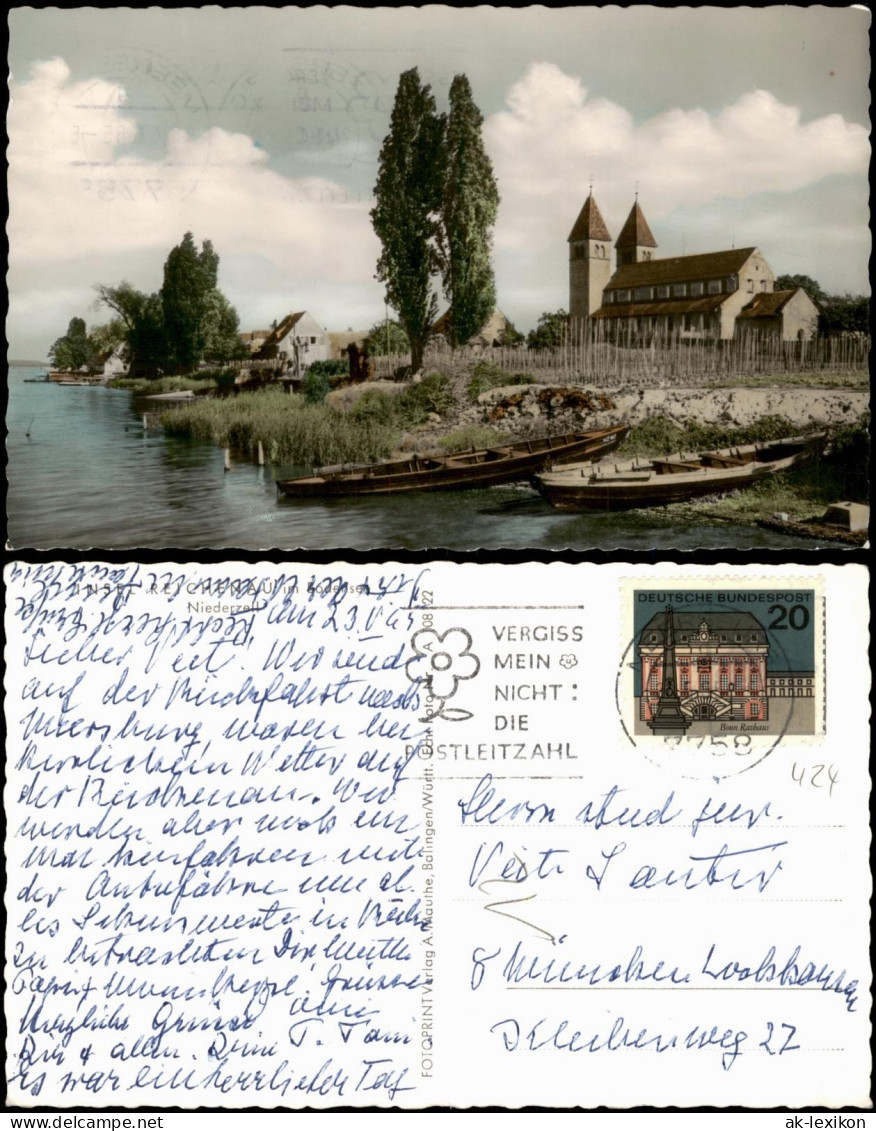 INSEL REICHENAU im Bodensee
Niederzell
am 23.
Lieber Veit! Wir sind
auf der Rückfahrt nach
Meersburg waren bei
herrlichem Wetter auf
der Reichenau. Wir
werden aber noch ein
mal hinfahren mit
der Autofähre um al
les Sehenswerte in Ruhe
zu betrachten. Die Mutti
Herzliche Grüsse
Dir & allen. Deine T. Toni
Es war ein herrlicher Tag
FOTOPRINT Verlag A. Mauthe, Balingen/Württ. Echt Foto
VERGISS
MEIN
NICHT:
DIE
POSTLEITZAHL
DEUTSCHE BUNDESPOST
20
Bonn Rathaus
7758
424
Herrn stud jur.
Veit
8 München
Kleibenweg 27
ak-lexikon